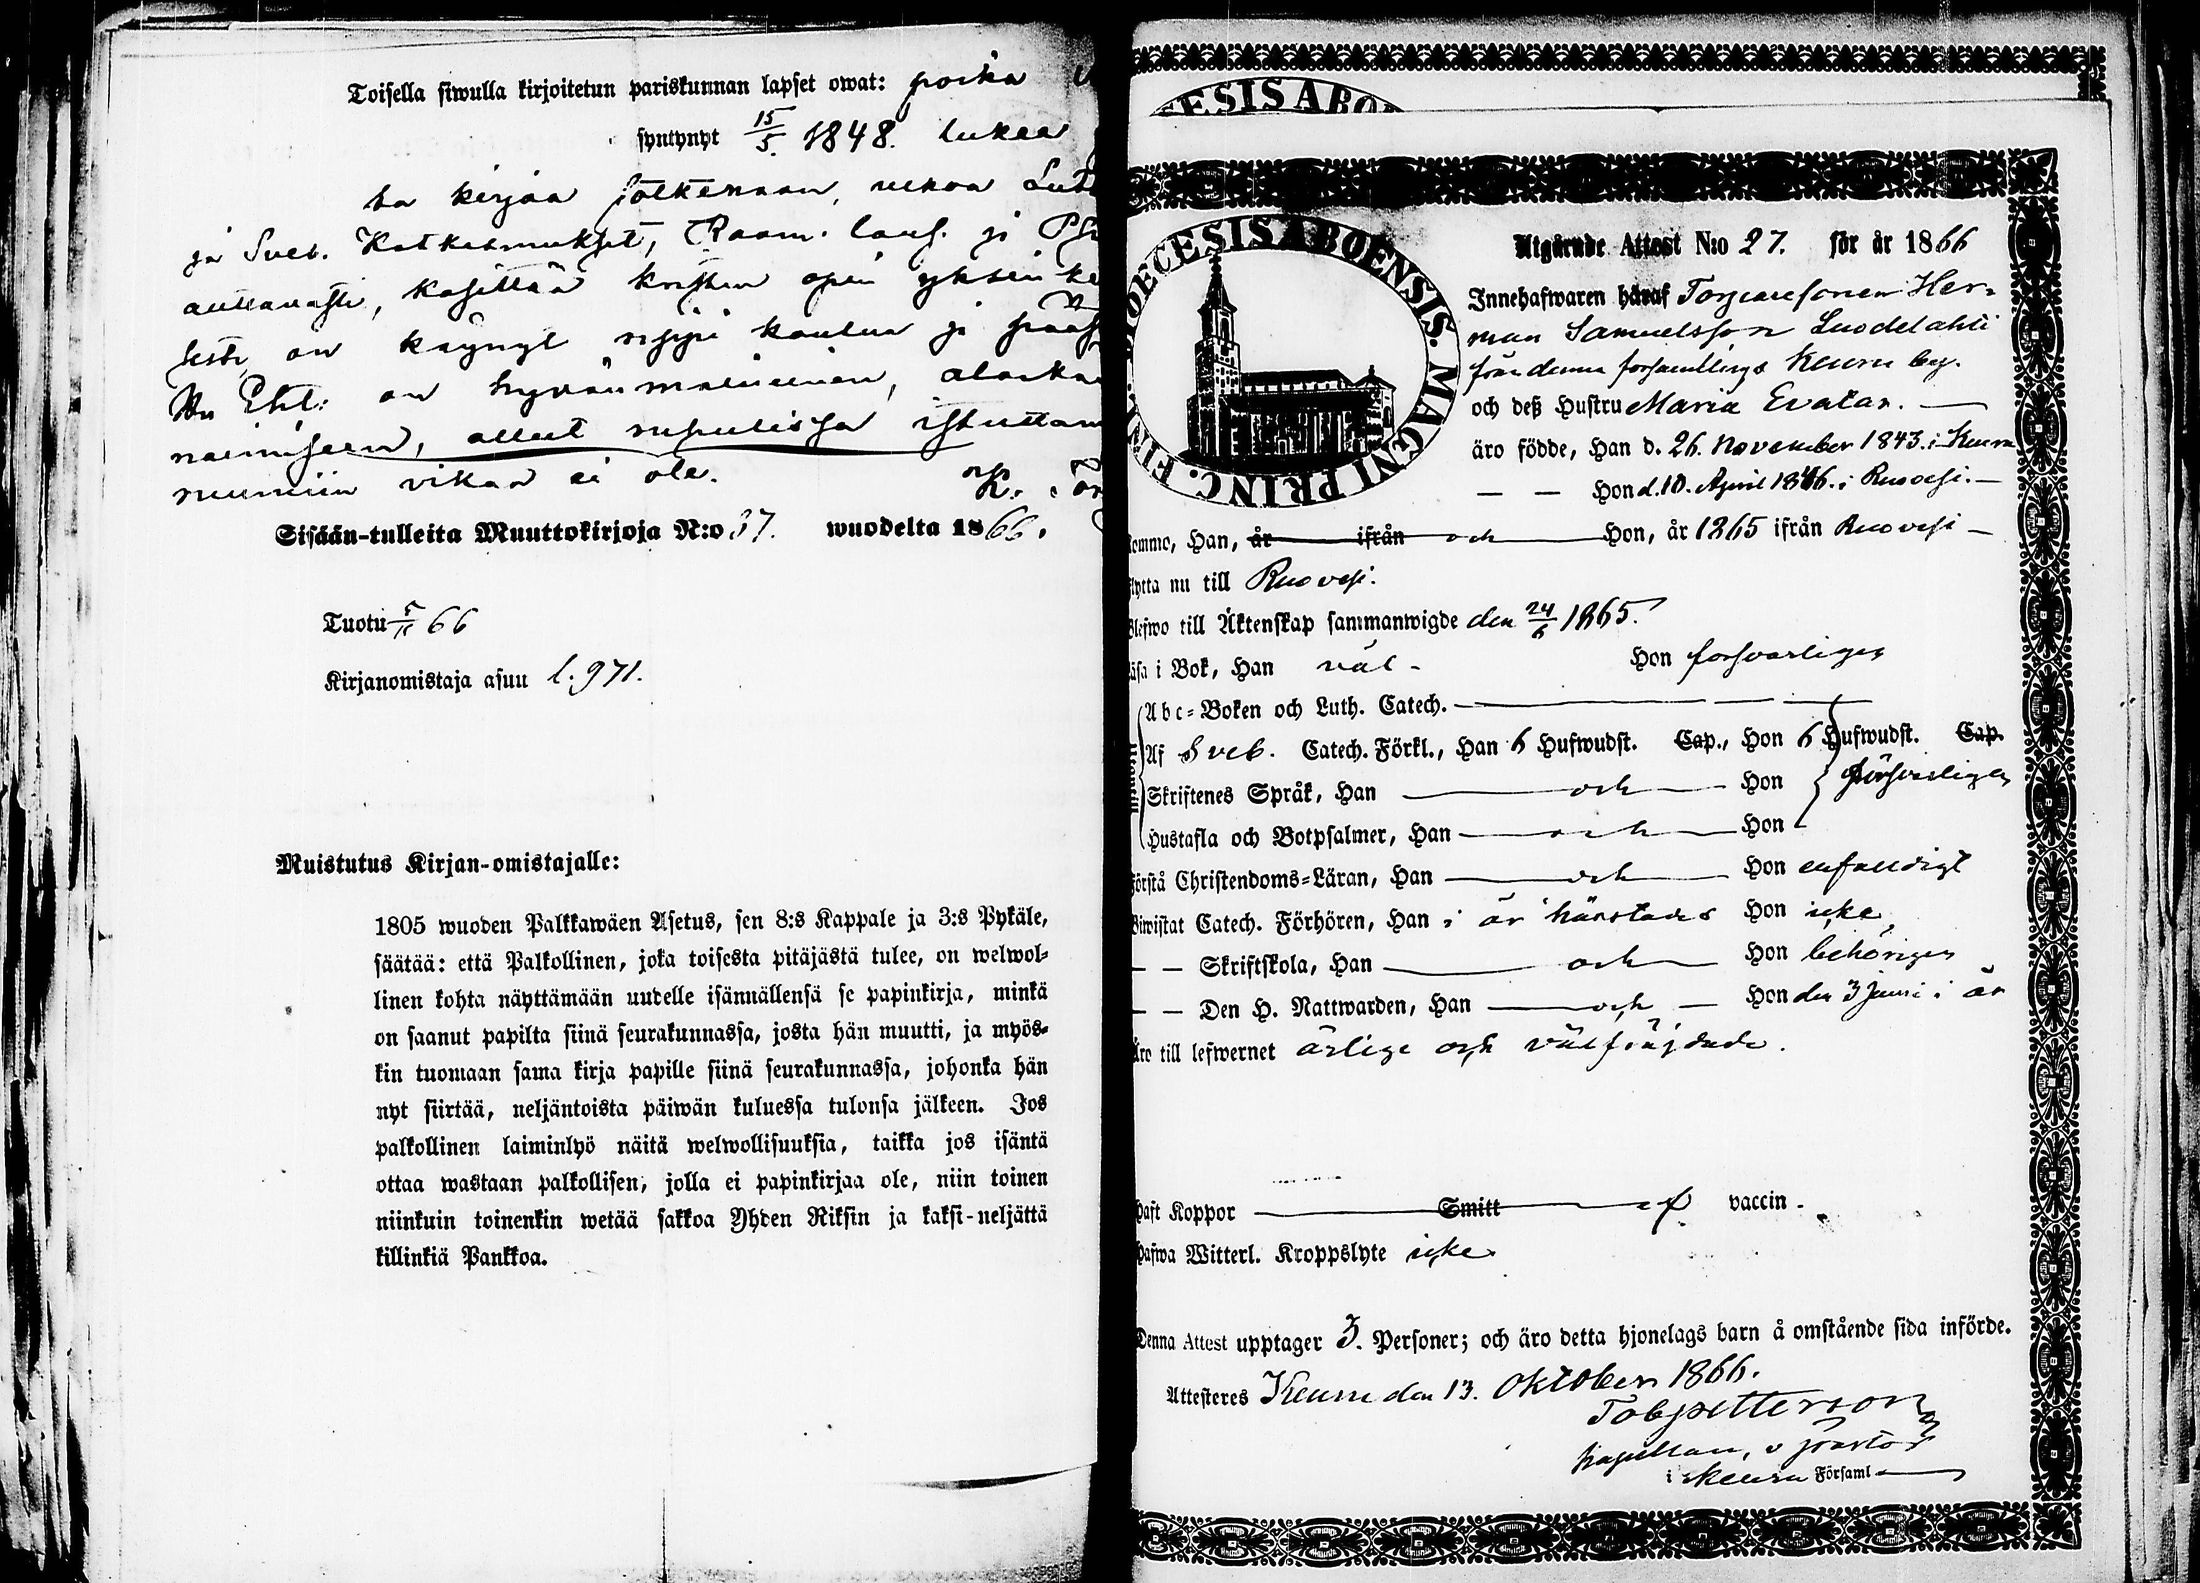 Toisella siwulla kirjoitetun pariskunnan lapset owat: poika
syntynyt 15/5 1848. lukea
ta kirjaa
ja Sveb. Katkesmukset, Raam. lauf. ja
auttavasti, käsittää kristin opin yksinke
sesti, on käynyt rippi koulua ja
on hyvän maineinen,
naimiseen,
ei ole.
Sisään-tulleita Muuttokirjoja N:o 37. wuodelta 1866.
Tuotu 66
Kirjanomistaja asuu l. 971.
Muistutus Kirjan-omistajalle:
1805 wuoden Palkkawäen Asetus, sen 8:s Kappale ja 3:s Pykäle,
säätää: että Palkollinen, joka toisesta pitäjästä tulee, on welwol-
linen kohta näyttämään uudelle isännällensä se papinkirja, minkä
on saanut papilta siinä seurakunnassa, josta hän muutti, ja myös-
kin tuomaan sama kirja papille siinä seurakunnassa, johonka hän
nyt siirtää, neljäntoista päiwän kuluessa tulonsa jälkeen. Jos
palkollinen laiminlyö näitä welwollisuuksia, taikka jos isäntä
ottaa wastaan palkollisen, jolla ei papinkirjaa ole, niin toinen
niinkuin toinenkin wetää sakkoa Yhden Riksin ja kaksi-neljättä
killinkiä Pankkoa.
ESIS ABO
DIOECESIS ABOENSIS. MAGNI PRINC. FINL.
Utgående Attest N:o 27. för år 1866
Innehafwaren häraf Torparesonen Her-
man Samuelsson Luodelahti
från denna församlings Keuru by.
och deß Hustru Maria Evatar.
äro födde, Han d. 26. November 1843. i Keuru
Hon d. 10. April 1846. i Ruovesi.
kommo, Han, år ifrån och Hon, år 1865 ifrån Ruovesi
flytta nu till Ruovesi.
Blefwo till Äktenskap sammanwigde den 24/6 1865.
läsa i Bok, Han väl Hon försvarligen
Abc-Boken och Luth. Catech.
Af Sveb. Catech. Förkl., Han 6 Hufwudst. Cap., Hon 6 Hufwudst. Cap.
Skriftenes Språk, Han och Hon försvarligen
Hustafla och Botpsalmer, Han och Hon
förstå Christendoms-Läran, Han och Hon enfaldigt
Biwistat Catech. Förhören, Han i år härstädes Hon icke
— — Skriftskola, Han och Hon behörigen
— — Den H. Nattwarden, Han och Hon den 3 Juni i år
Äro till lefwernet ärlige och välfräjdade.
haft Koppor Smitt af vaccin.
hafwa Witterl. Kroppslyte icke
Denna Attest upptager 3. Personer; och äro detta hjonelags barn å omstående sida införde.
Attesteres Keuru den 13. Oktober 1866.
Tob petterson
kapellan, v pastor
i Keuru Församl